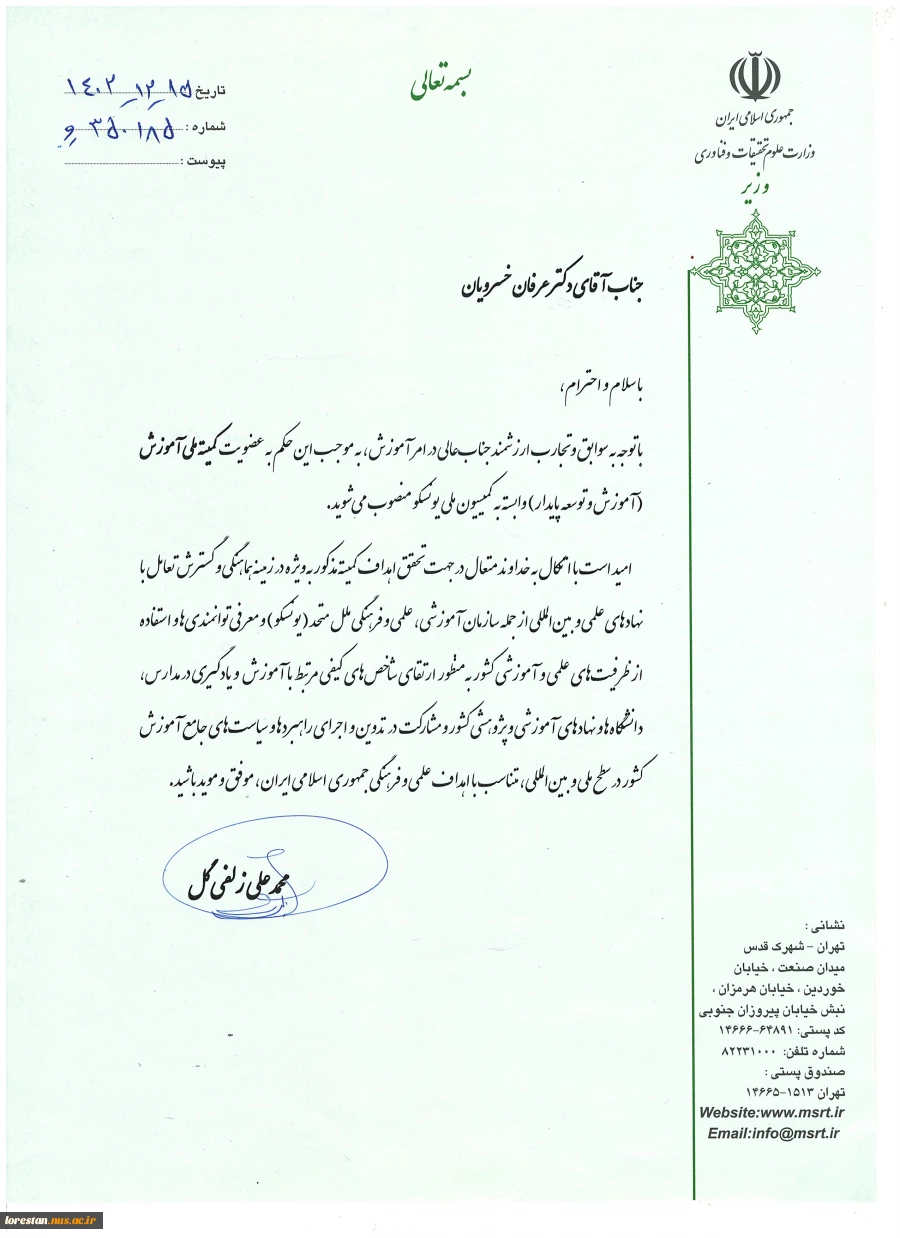 بسمه تعالی
جمهوری اسلامی ایران
وزارت علوم تحقیقات و فناوری
وزیر
تاریخ ۱۴۰۲_۱۲_۱۵
شماره : ۳۵۰۱۸۵ و
پیوست :
جناب آقای دکتر عرفان خسرویان
با سلام و احترام،
با توجه به سوابق و تجارب ارزشمند جناب‌عالی در امر آموزش، به موجب این حکم به عضویت کمیته ملی آموزش
(آموزش و توسعه پایدار) وابسته به کمیسیون ملی یونسکو منصوب می‌شوید.
امید است با اتکال به خداوند متعال در جهت تحقق اهداف کمیته مذکور به ویژه در زمینه هماهنگی و گسترش تعامل با
نهادهای علمی و بین‌المللی از جمله سازمان آموزشی، علمی و فرهنگی ملل متحد (یونسکو) و معرفی توانمندی‌ها و استفاده
از ظرفیت‌های علمی و آموزشی کشور به منظور ارتقای شاخص‌های کیفی مرتبط با آموزش و یادگیری در مدارس،
دانشگاه‌ها و نهادهای آموزشی و پژوهشی کشور و مشارکت در تدوین و اجرای راهبردها و سیاست‌های جامع آموزش
کشور در سطح ملی و بین‌المللی، متناسب با اهداف علمی و فرهنگی جمهوری اسلامی ایران، موفق و موید باشید.
محمدعلی زلفی گل
نشانی :
تهران – شهرک قدس
میدان صنعت ، خیابان
خوردین ، خیابان هرمزان ،
نبش خیابان پیروزان جنوبی
کد پستی: ۶۴۸۹۱–۱۴۶۶۶
شماره تلفن: ۸۲۲۳۱۰۰۰
صندوق پستی :
تهران ۱۵۱۳–۱۴۶۶۵
Website:www.msrt.ir
Email:info@msrt.ir
lorestan.nus.ac.ir